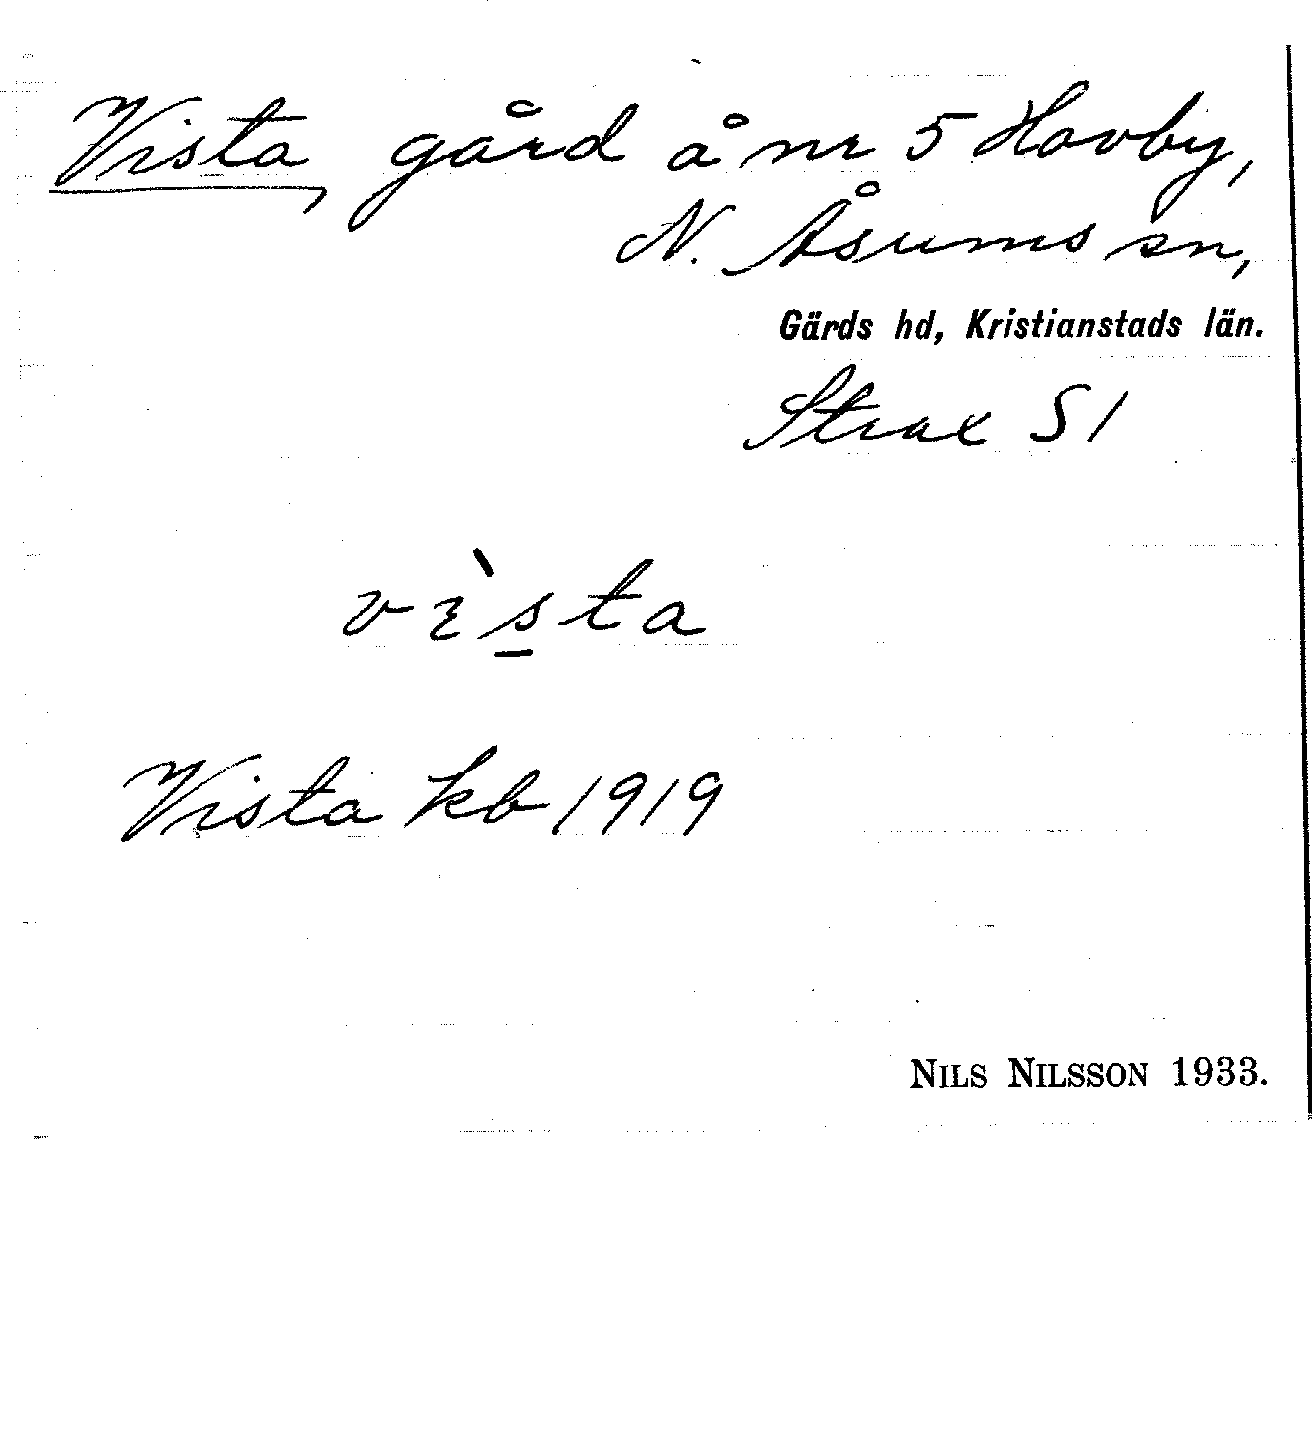 Vista, gård å nr 5 Hovby,
N. Åsums sn,
Gärds hd, Kristianstads län.
Strax S /
vìsta
Vista kb 1919
NILS NILSSON 1933.